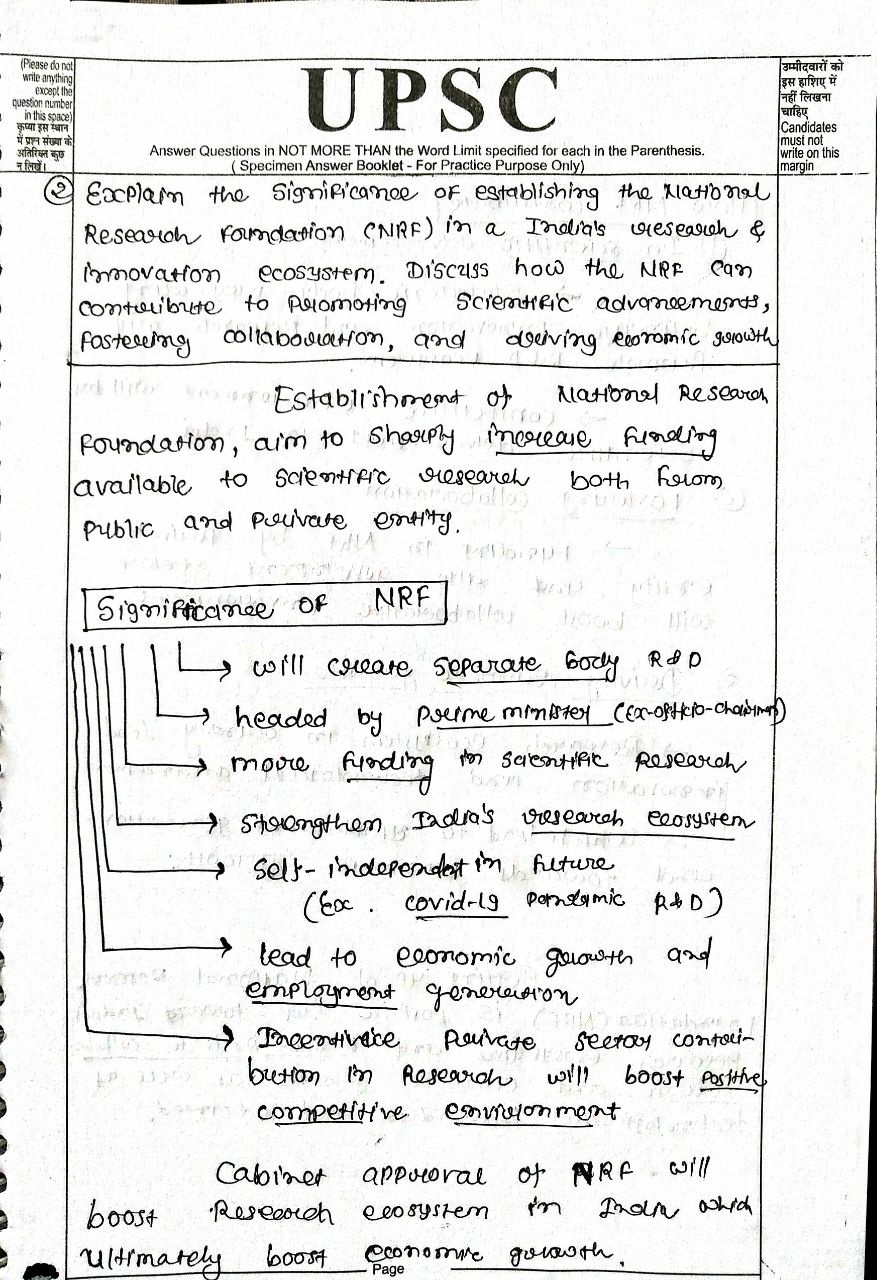 (Please do not
write anything
except the
question number
in this space)
कृप्या इस स्थान
में प्रश्न संख्या के
अतिरिक्त कुछ
न लिखें।
UPSC
Answer Questions in NOT MORE THAN the Word Limit specified for each in the Parenthesis.
( Specimen Answer Booklet - For Practice Purpose Only)
उम्मीदवारों को
इस हाशिए में
नहीं लिखना
चाहिए
Candidates
must not
write on this
margin
② Explain the Significance of establishing the National
Research Foundation (NRF) in a India's research &
innovation ecosystem. Discuss how the NRF can
contribute to Promoting Scientific advancements,
fostering collaboration, and driving economic growth
Establishment of National Research
Foundation, aim to sharply increase funding
available to Scientific research both from
Public and Private entity.
Significance OF NRF
→ will create separate body R&D
→ headed by Prime minister (Ex-officio-chairman)
→ more funding in scientific Research
→ Strengthen India's research ecosystem
→ Self-independent in future
(Ex. covid-19 pandamic R&D)
→ lead to economic growth and
employment generation
→ Incentivice Private sector contri-
bution in Research will boost Positive
competitive environment
Cabinet approval of NRF will
boost Research ecosystem in India which
Ultimately boost economic growth.
Page